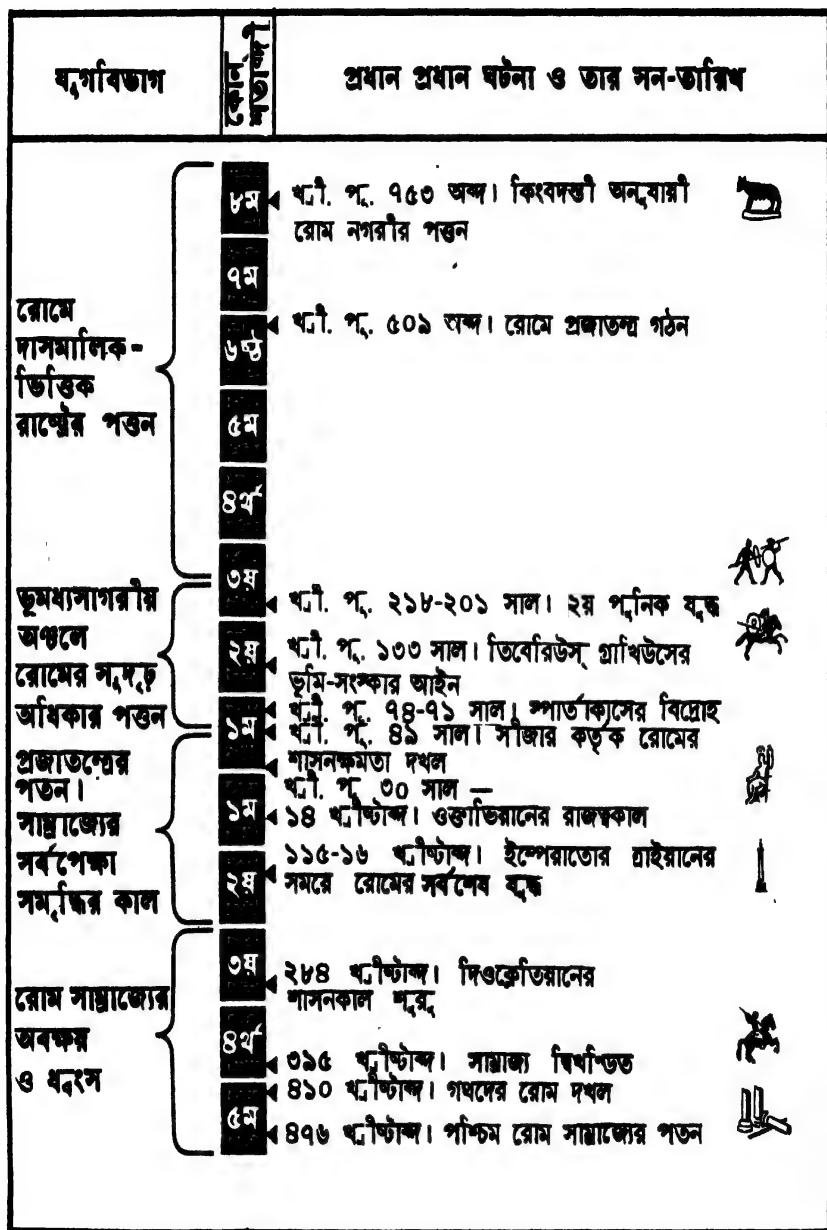 যুগবিভাগ
কোন শতাব্দী
প্রধান প্রধান ঘটনা ও তার সন-তারিখ
রোমে
দাসমালিক-
ভিত্তিক
রাষ্ট্রের পত্তন
৮ম
খ্রী. পূ. ৭৫৩ অব্দ। কিংবদন্তী অনুযায়ী
রোম নগরীর পত্তন
৭ম
৬ষ্ঠ
খ্রী. পূ. ৫০৯ অব্দ। রোমে প্রজাতন্ত্র গঠন
৫ম
৪র্থ
ভূমধ্যসাগরীয়
অঞ্চলে
রোমের সুদৃঢ়
অধিকার পত্তন
৩য়
খ্রী. পূ. ২১৮-২০১ সাল। ২য় পুনিক যুদ্ধ
২য়
খ্রী. পূ. ১৩৩ সাল। তিবেরিউস্ গ্রাখিউসের
ভূমি-সংস্কার আইন
১ম
খ্রী. পূ. ৭৪-৭১ সাল। স্পার্তাকাসের বিদ্রোহ
খ্রী. পূ. ৪৯ সাল। সীজার কর্তৃক রোমের
শাসনক্ষমতা দখল
প্রজাতন্ত্রের
পতন।
সাম্রাজ্যের
সর্বপেক্ষা
সমৃদ্ধির কাল
খ্রী. পূ ৩০ সাল —
১ম
১৪ খ্রীষ্টাব্দ। ওক্তাভিয়ানের রাজত্বকাল
২য়
১১৫-১৬ খ্রীষ্টাব্দ। ইম্পেরাতোর ত্রাইয়ানের
সময়ে রোমের সর্বশেষ যুদ্ধ
রোম সাম্রাজ্যের
অবক্ষয়
ও ধ্বংস
৩য়
২৮৪ খ্রীষ্টাব্দ। দিওক্লেতিয়ানের
শাসনকাল শুরু
৪র্থ
৩৯৫ খ্রীষ্টাব্দ। সাম্রাজ্য দ্বিখণ্ডিত
৪১০ খ্রীষ্টাব্দ। গথদের রোম দখল
৫ম
৪৭৬ খ্রীষ্টাব্দ। পশ্চিম রোম সাম্রাজ্যের পতন